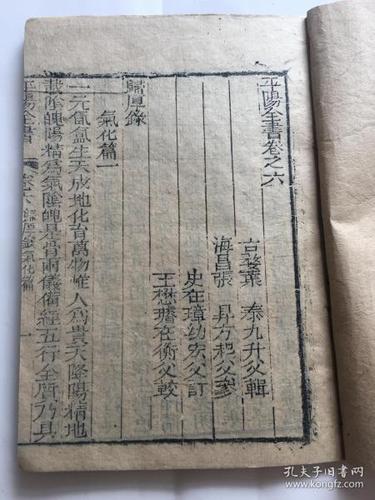 平陽全書卷之六
古婺葉　泰九升父輯
海昌張　昇方起父參
史在璋幼宏父訂
王懋
在衡父較
歸厚錄
氣化篇一
一元氤氳生天成地化育萬物惟人爲貴天降陽精地
載陰魄陽精爲氣陰魄是骨兩儀備經五行全質乃具
平陽全書
氣化篇
一
孔夫子旧书网
kongfz.com